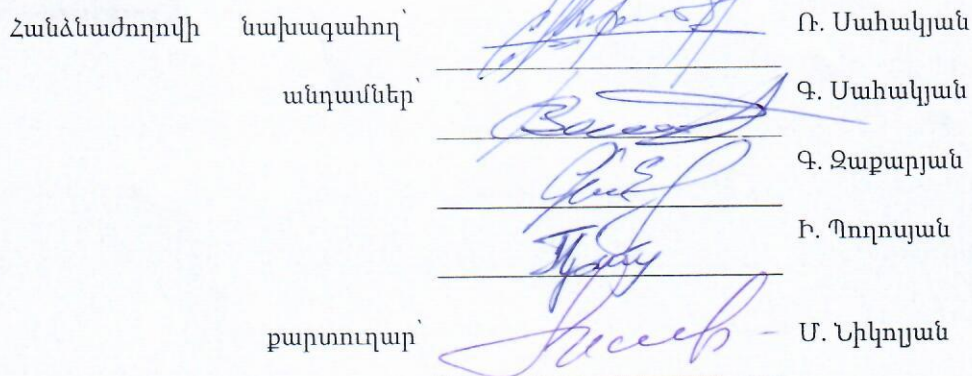 Հանձնաժողովի նախագահող՝ Ռ. Սահակյան
անդամներ՝ Գ. Սահակյան
Գ. Զաքարյան
Ի. Պողոսյան
քարտուղար՝ Մ. Նիկոլյան